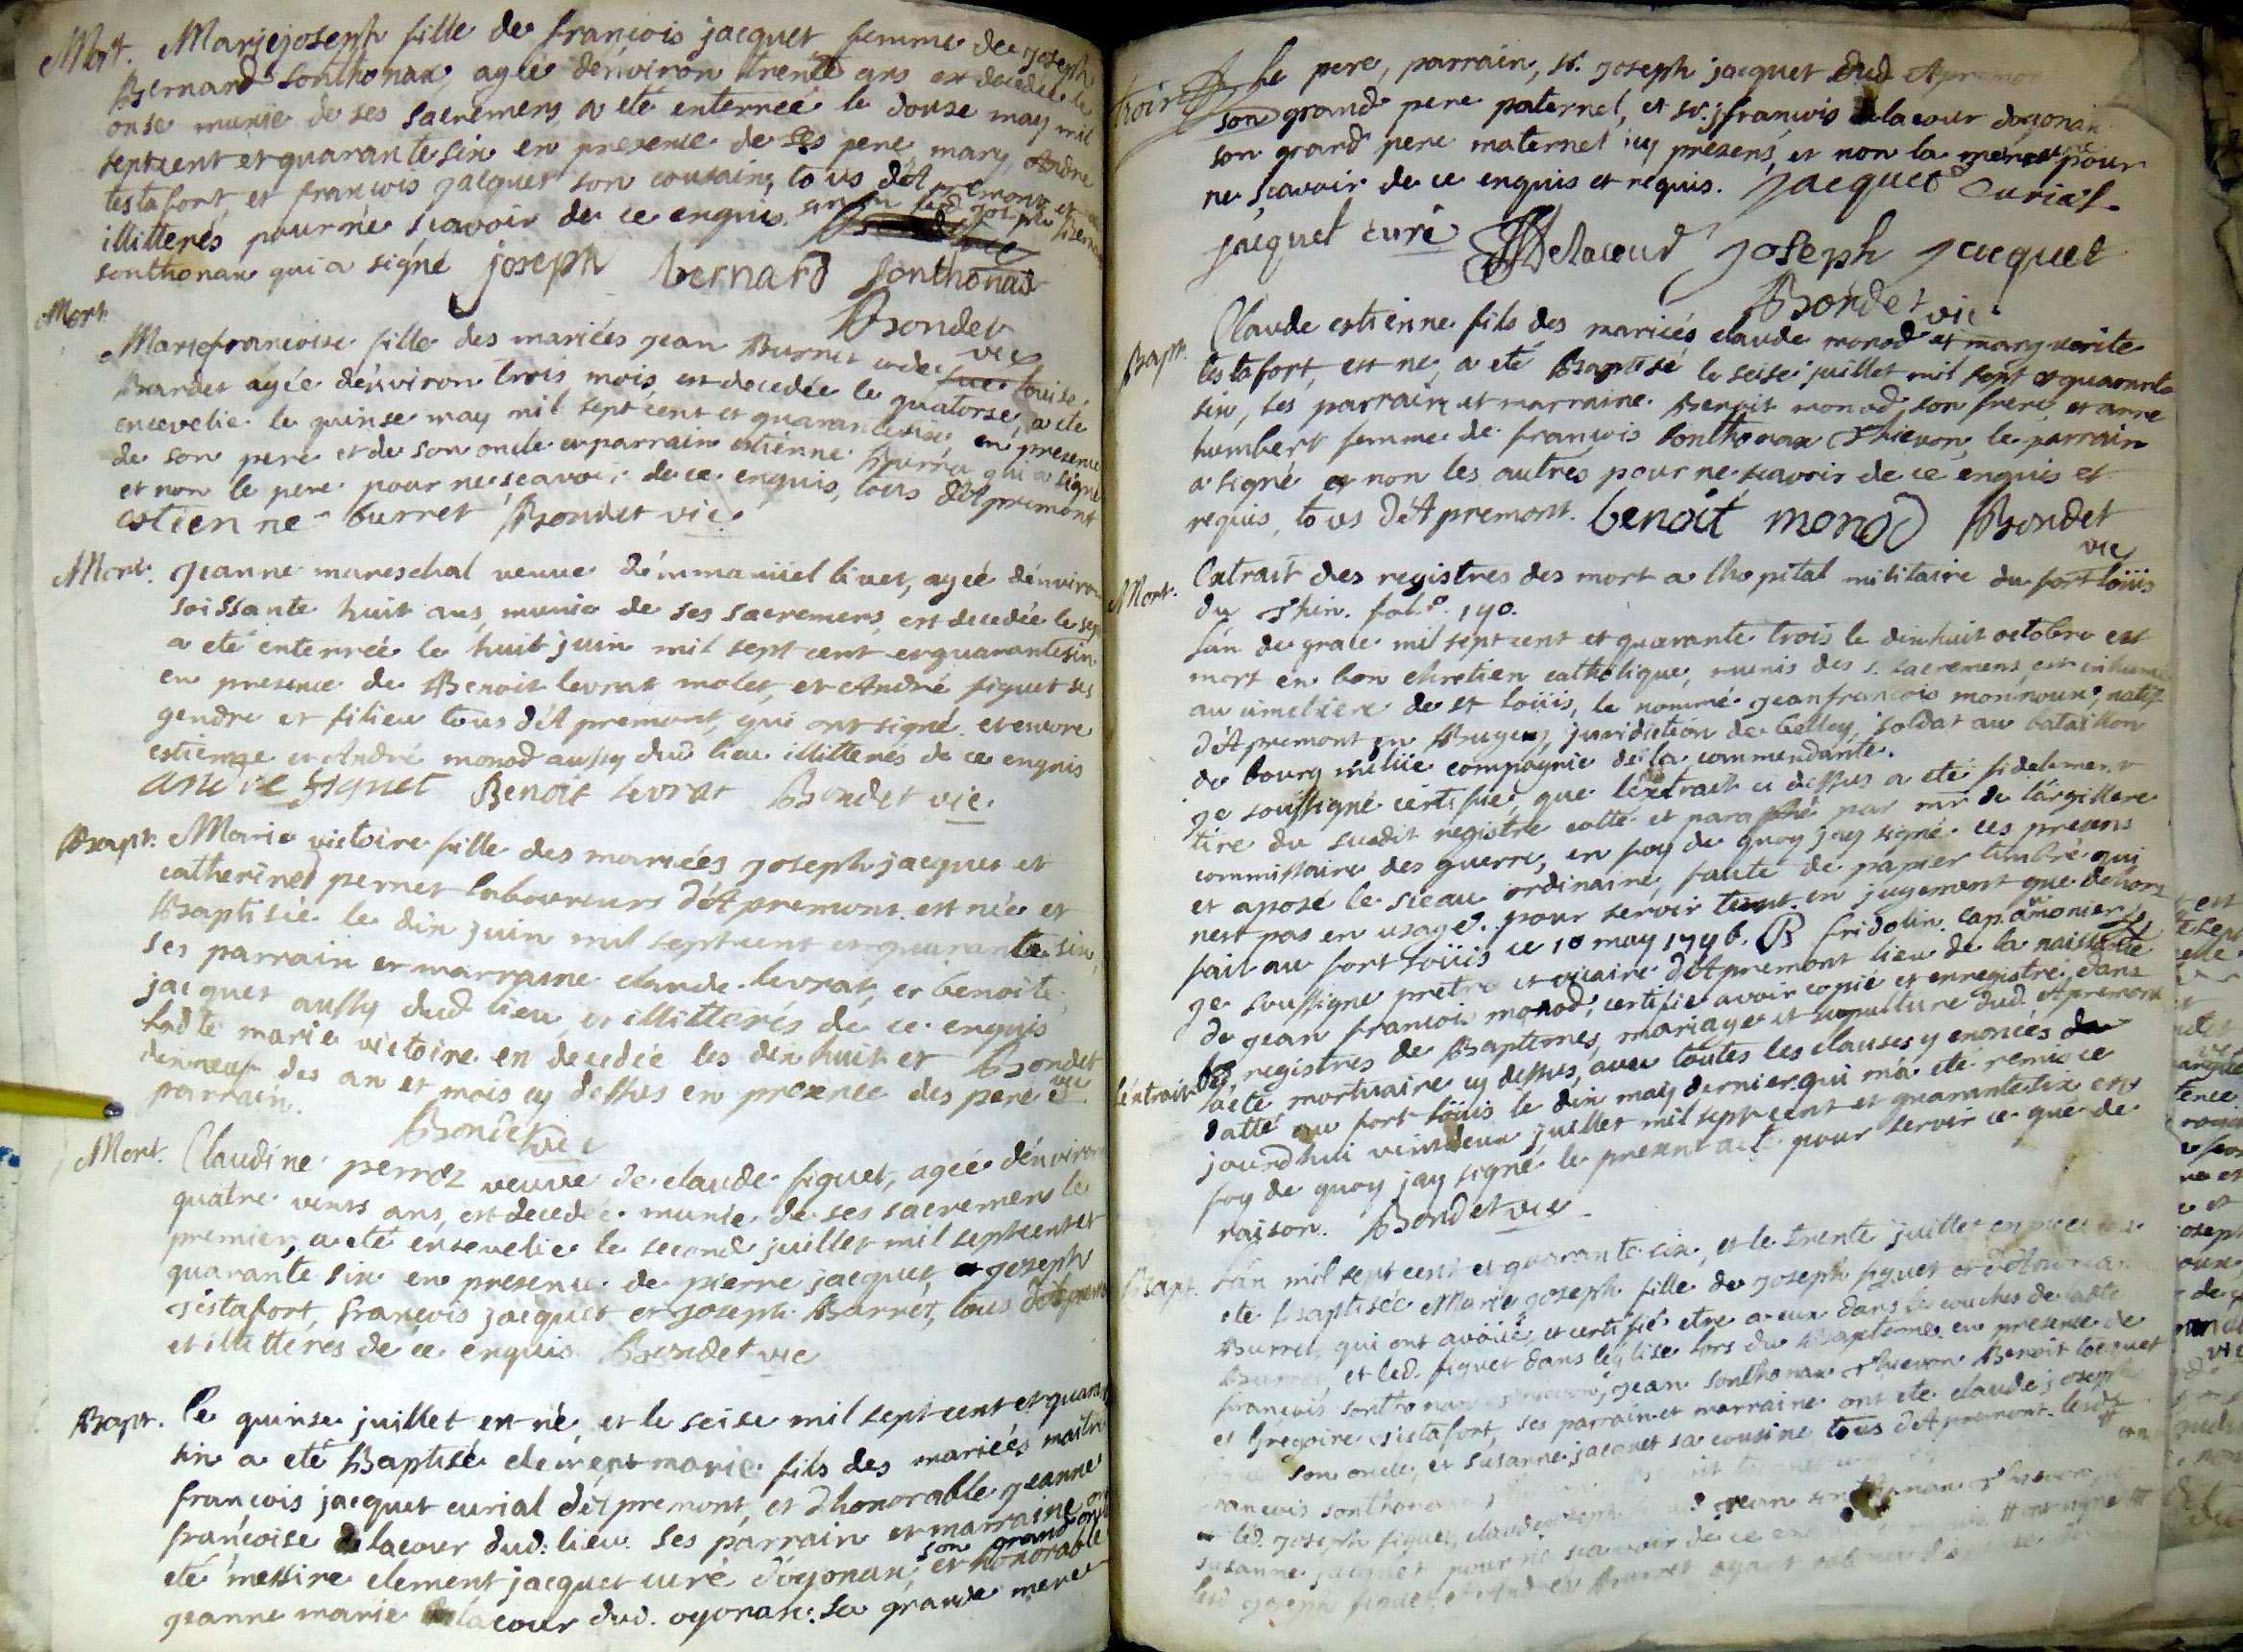 Mort. Mariejoseph fille de francois jacquet femme de joseph
Bernard Sonthonax, agée dénviron trente ans est decedée le
onse munie de ses sacremens, a eté enterreé le douse may mil
septcent et quarante six en presence de ses pere, mary, Andre
testafort, et francois jacquet son cousain, tous dApremont et
illitterés pour ne scavoir de ce enquis.
sonthonax qui a signé joseph bernard sonthonax
Bondet
vic
Mort.
Mariefrancoise fille des mariés jean Burnet et de louise
Bardet agée dénviron trois mois est decedée le quatorse, a eté
encevelie le quinse may mil septcent et quarantesix en presence
de son pere et de son oncle et parrain estienne Burret qui a signé
et non le pere pour ne scavoir de ce enquis, tous dApremont
estienne burret Bondet vic.
Mort. jeanne mareschal veuve démmanüel livet, agée dénviron
soissante huit ans, munie de ses sacremens, est decedée le sept
a eté enterrée le huit juin mil septcent et quarantesix
en presence de Benoit levrat molet, et André figuet ses
gendre et filieu tous dApremont, qui ont signé et encore
estienne et André monod aussy dud lieu illitterés de ce enquis
andre figuet Benoit levrat Bondet vic.
Bapt. Marie victoire fille des mariées joseph jacquet et
catherine pernet laboureurs dApremont est née et
Baptisée le dix juin mil septcent et quarante six,
ses parrain et marraine claude levrat, et benoite
jacquet aussy dud lieu, et illitterés de ce enquis
ladte marie victoire en decedée les dix huit et Bondet
dixneuf des an et mois cy dessus en presence des pere et vic
parrain.
Bondet vic
Mort. Claudine perroz veuve de claude figuet, agée dénviron
quatre vints ans, est decedée munie de ses sacremens le
premier, a eté ensevelie le second juillet mil septcent et
quarante six en presence de pierre jacquet, et joseph
testafort, francois jacquet et joseph Barret, tous dApremont
et illitteres de ce enquis Bondet vic
Bapt. Le quinse juillet est né, et le seise mil septcent et quarante
six a eté Baptisé clement marie fils des mariées maitre
francois jacquet curial dApremont, et d'honorable jeanne
francoise delacour dud. lieu. ses parrain et marraine ont
eté messire clement jacquet curé dóyonax, son grand oncle et honorable
jeanne marie delacour dud. oyonax. sa grande mere
le pere, parrain, sr. joseph jacquet dud Apremont
son grand pere paternel, et sr. jfrancois delacour doyonax
son grand pere maternel icy présens, et non la mere pour
ne scavoir de ce enquis et requis. Jacquet Curial
jacquet curé Delacour Joseph jacquet
Bondet vic
Bapt. Claude estienne fils des mariées claude monod et marguerite
testafort, est ne, a eté Baptisé le seise juillet mil sept et quarante
six, ses parrain et marraine Benoit monod son frere, et anne
humbert femme de françois sonthonax Thievon, le parrain
a signé et non les autres pour ne scavoir de ce enquis et
requis, tous dApremont. benoit monod Bondet
vic
Mort. Extrait des registres des mort a lhopital militaire du fort loüis
du Rhin. fol.o 190.
Lán de grace mil septcent et quarante trois le dixhuit octobre est
mort en bon chretien catholique, munis des s. sacremens est inhumé
au cimetiere de st loüis, le nommé jeanfrancois monnoux, natif
dApremont en Bugey, juridiction de belley, soldat au bataillon
de bourg milice compagnie de la commendante.
je soussigné certifie, que lextrait ci dessus a eté fidelement
tire du susdit registre cotté et paraphé par mr de largillere
commissaire des guerre, en foy de quoy jay signé ces presens
et aposé le sceau ordinaire, faute de papier timbré qui
nest pas en usage. pour servir tant en jugement que dehors
fait au fort loüis ce 10 may 1746. fridolin cap. aumonier
je soussigne prêtre et vicaire dApremont lieu de la naissance
de jean francois monod, certifie avoir copié et enregistré dans
les registres de Baptemes, mariage et sepulture dud. Apremont
léxtrait lacte mortuaire cy dessus, avec toutes les clauses y enoncées
datté au fort loüis le dix may dernier qui má eté remis ce
jourdhui vintdeux juillet mil septcent et quarantesix en
foy de quoy jay signé le present acte pour servir ce que de
raison. Bondet vic
Bapt. Lán mil septcent et quarante six, et le trente juillet
ete baptisée Marie joseph fille de joseph figuet et
Burret, qui ont avoüé et certifié etre a eux dans les couches de
et led. figuet dans léglise lors du Bapteme en presence de
francois sonthonax, jean sonthonax Thievon Benoit
et Gregoire testafort, ses parrain et marraine ont ete claude joseph
son oncle, et susanne jacquet sa cousine tous dApremont. lesd
francois sonthonax
led. joseph figuet, claude joseph jean sonthonax
susanne jacquet pour ne scavoir de ce
led joseph figuet